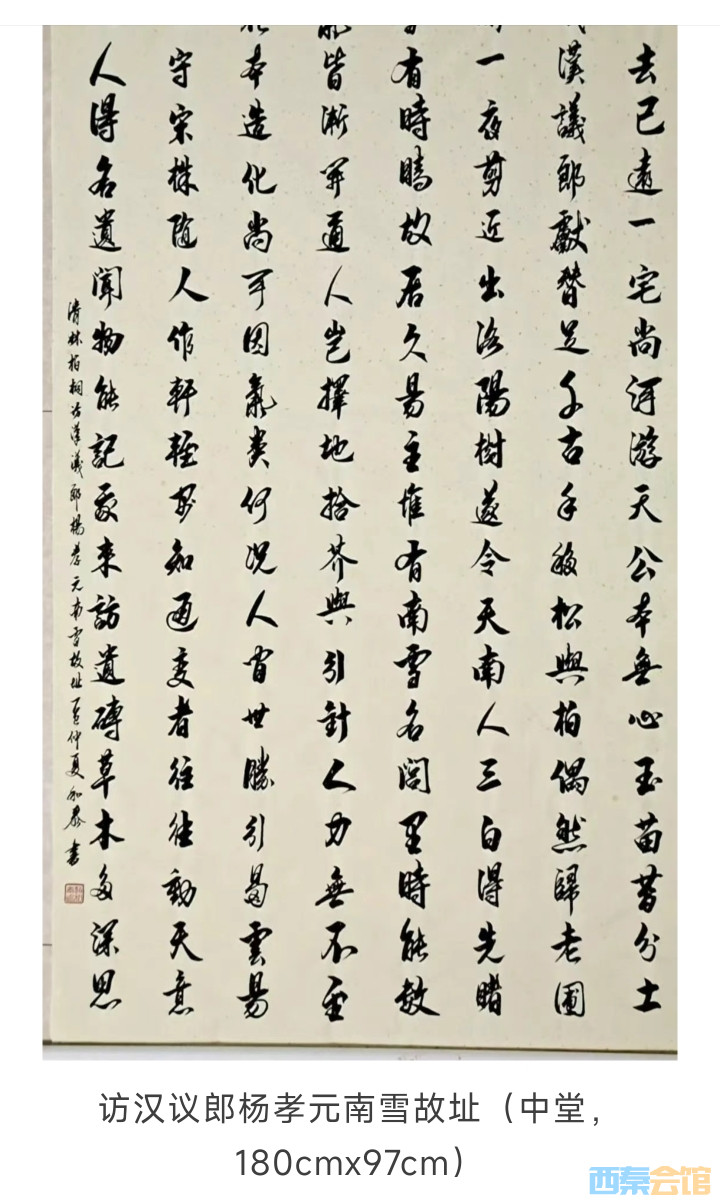 去已遠一宅尚河游天公本無心玉苗昔分土
漢議郎獻替足千古手移松與柏偶然歸老圃
一夜剪近出洛陽樹遂令天南人三白得先睹
有時晴故居久易主惟有南雪名閭里時能數
皆漸開道人豈擇地拾芥與引針人力無不至
本造化尚可因氣類何況人間世勝引曷雲易
守宋株隨人作軒輊安知通變者往往動天意
人得名遺聞物能記我來訪遺磚草木多深思
清林柏桐訪漢議郎楊孝元南雪故址仲夏書
访汉议郎杨孝元南雪故址（中堂，
180cmx97cm）
西秦会馆